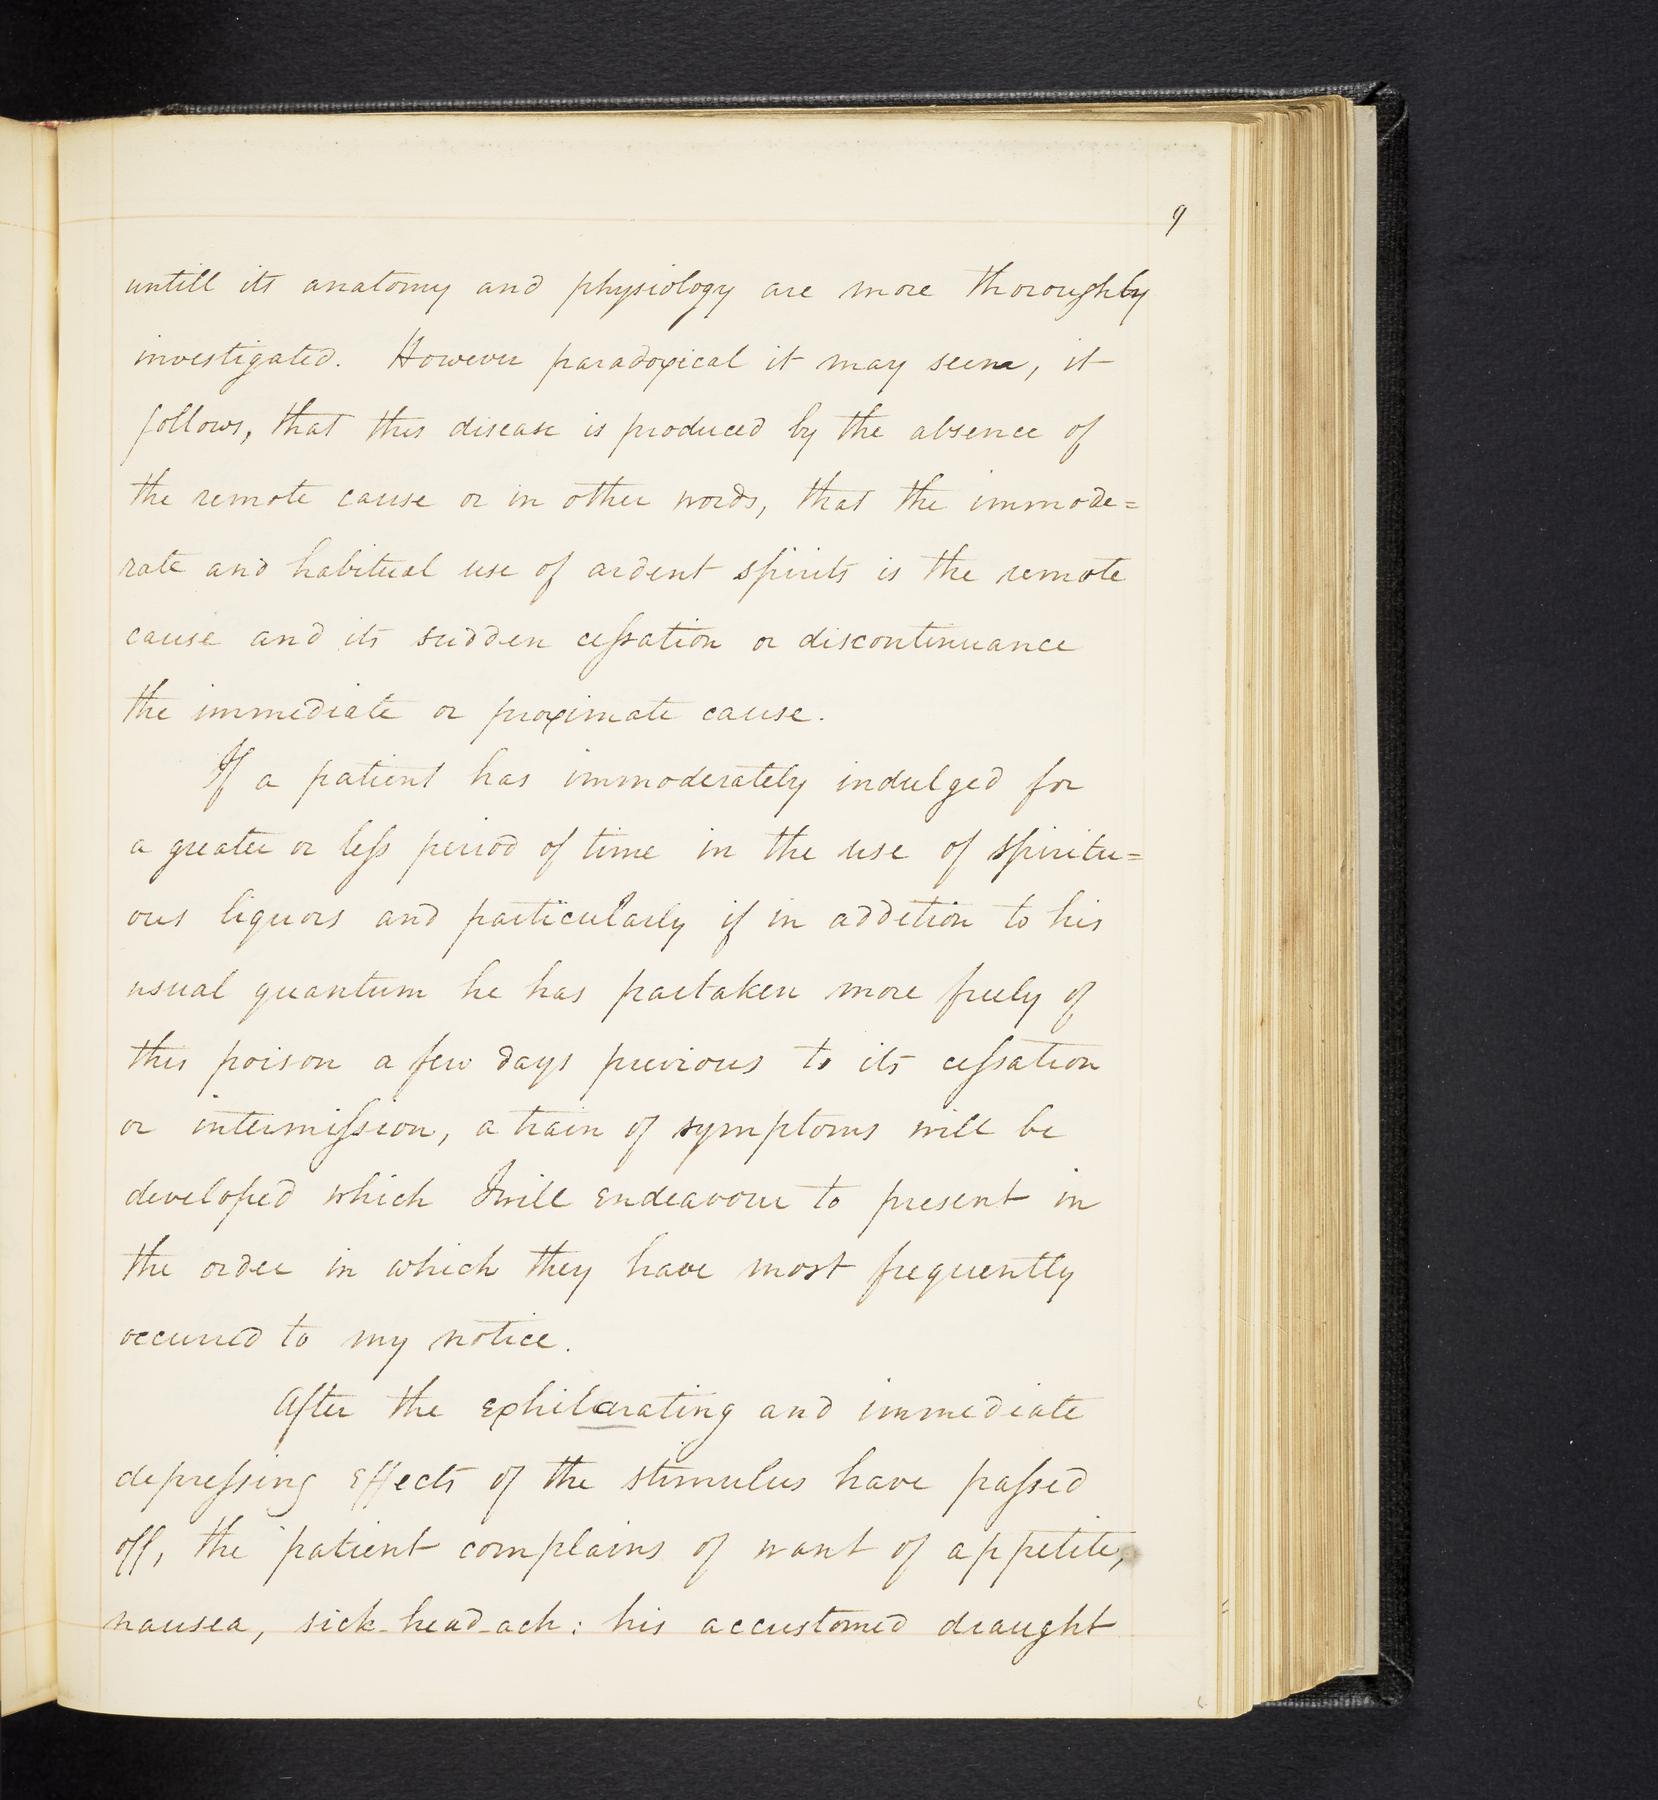 9
untill its anatomy and physiology are more thoroughly
investigated. However paradoxical it may seem, it
follows, that this disease is produced by the absence of
the remote cause or in other words, that the immode=
rate and habitual use of ardent spirits is the remote
cause and its sudden cessation or discontinuance
the immediate or proximate cause.
If a patient has immoderately indulged for
a greater or less period of time in the use of spiritu=
ous liquors and particularly if in addetion to his
usual quantum he has partaken more freely of
this poison a few days previous to its cessation
or intermission, a train of symptoms will be
developed which I will endeavour to present in
the order in which they have most frequently
occurred to my notice.
After the exhilarating and immediate
depressing effects of the stimulus have passed
off, the patient complains of want of appetite,
nausea, sick-head-ach: his accustomed draught